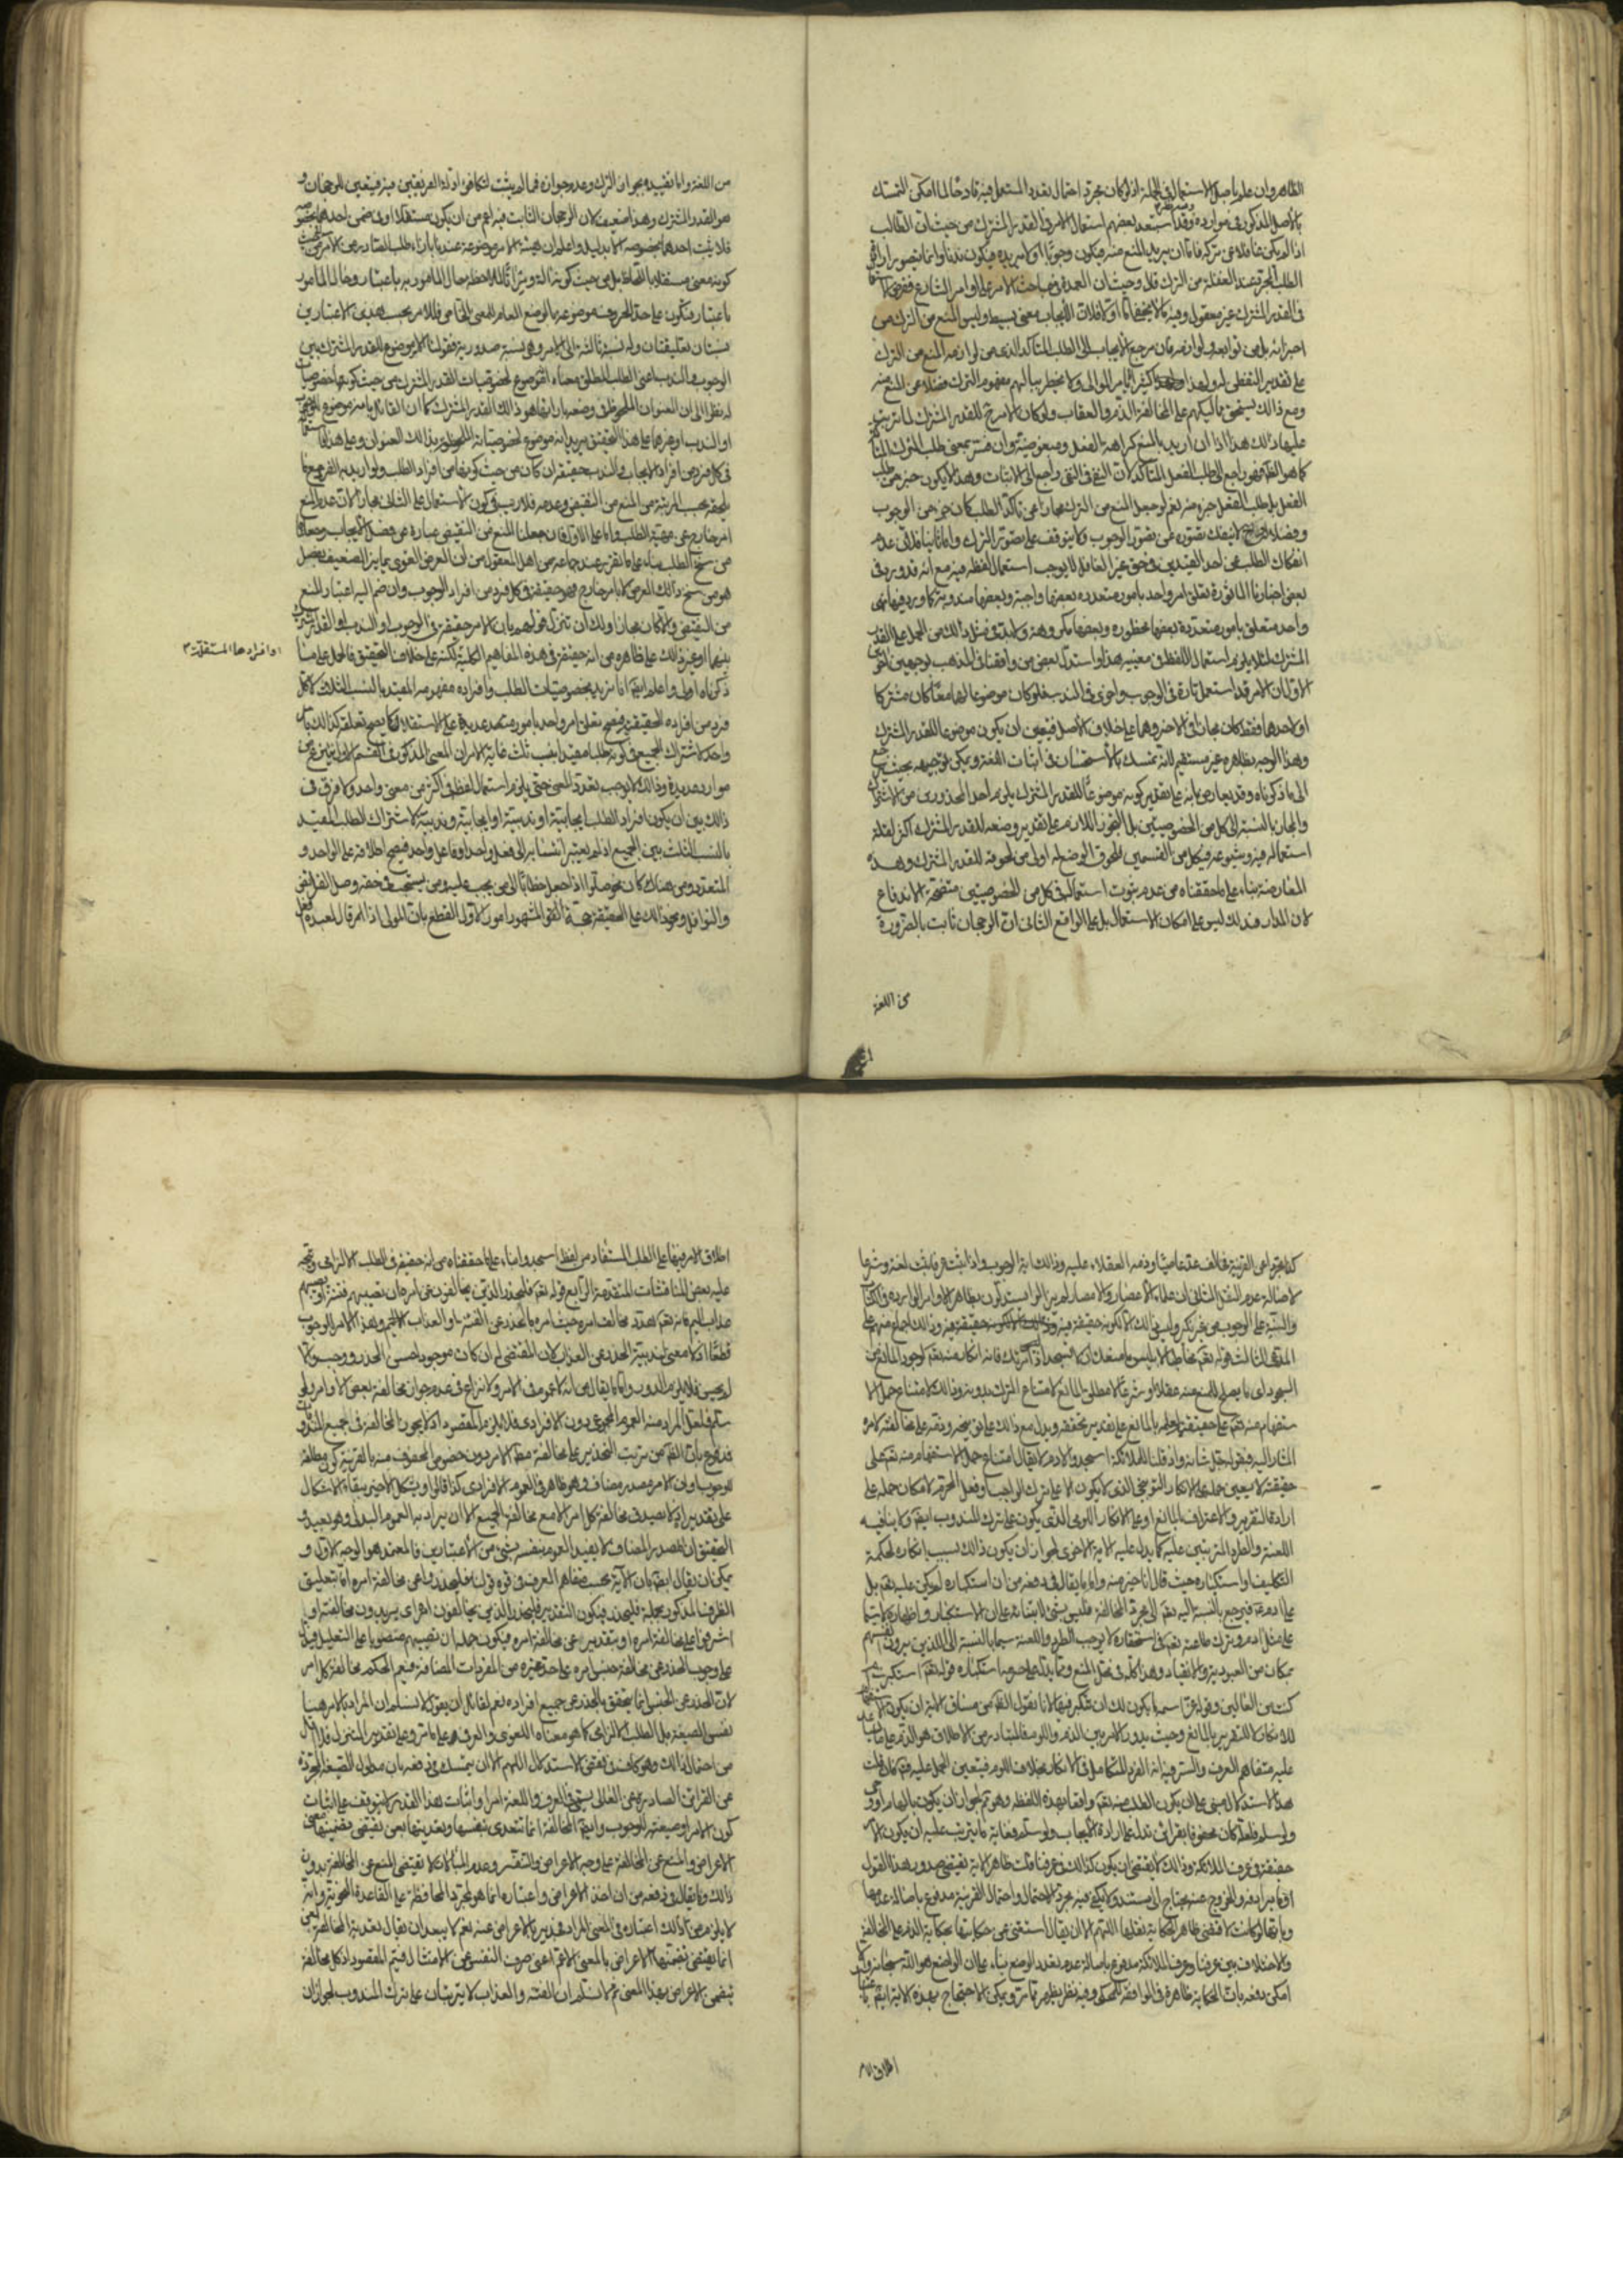 الظاهر وان علم باصل الاستعمال في الجملة اذ لو كان مجرد احتمال تعدد المستعمل فيه قادحا لما امكن التمسك
بالاصل المذكور في موارده وقد استبعد بعضهم استعمال الامر في القدر المشترك من حيث ان الطالب
اذا لم يكن غافلا عن تركه فاما ان يريد المنع منه فيكون وجوبا او لا يريده فيكون ندبا وانما يتصور ارادة
الطلب المجرد عند الغفلة عن الترك قال وحيث ان العمدة في مباحث الامر على اوامر الشارع ففرض
في القدر المشترك غير معقول وفيه ما لا يخفى اما اولا فلان الايجاب معنى بسيط وليس المنع من الترك من
اجزائه بل من توابعه ولوازمه فان مرجع الايجاب الى الطلب المتاكد الذي من لوازمه المنع من الترك
على تقدير التفطن له ولهذا كثيرا ما يامر الموالي ولا يخطر ببالهم مفهوم الترك فضلا عن المنع منه
ومع ذلك يستحق مماليكهم على المخالفة الذم والعقاب ولو كان الامر للقدر المشترك لما ترتب
عليها ذلك هذا اذا اريد بالمنع كراهة الفعل ومبغوضيته وان فسر بمعنى طلب الترك
كما هو الظاهر فهو راجع الى طلب الفعل المتاكد لان النفي في النفي راجع الى الاثبات وهذا لا يكون جزء من طلب
الفعل بل طلب الفعل جزء منه نعم لو جعل المنع من الترك مجازا عن تاكد الطلب كان جزء من الوجوب
وفصلا له لا ينفك تصوره عن تصور الوجوب ولا يتوقف على تصور الترك واما ثانيا فلان عدم
انفكاك الطلب عن احد القيدين في حق غير الغافل لا يوجب استعمال لفظه فيه مع انه قد ورد في
بعض اخبارنا الماثورة تعلق امر واحد بامور متعددة بعضها واجبة وبعضها مندوبة كما ورد فيها نهي
واحد متعلق بامور متعددة بعضها محظورة وبعضها مكروهة ولا بد في مثل ذلك من الحمل على القدر
المشترك لئلا يلزم استعمال اللفظ في معنييه هذا واستدل بعض من وافقنا في المذهب بوجهين اخرين
الاول ان الامر قد استعمل تارة في الوجوب واخرى في الندب فلو كان موضوعا لهما معا كان مشتركا
او لاحدهما فقط كان مجازا في الاخر وهما على خلاف الاصل فيتعين ان يكون موضوعا للقدر المشترك
وهذا الوجه بظاهره غير مستقيم لانه تمسك بالاستحسان في اثبات اللغة ويمكن توجيهه بحيث يرجع
الى ما ذكرناه وقد يعارض بانه على تقدير كونه موضوعا للقدر المشترك يلزم احد المحذورين من الاشتراك
والمجاز بالنسبة الى كل من الخصوصيتين بل التجوز اللازم على تقدير وضعه للقدر المشترك اكثر لقلة
استعماله فيه وشيوعه في كل من القسمين فلحوق الوضع له اولى من لحوقه للقدر المشترك وهذه
المعارضة بناء على ما حققناه من عدم ثبوت استعماله في كل من الخصوصيتين متضحة الاندفاع
لان المدار في ذلك ليس على امكان الاستعمال بل على الواقع الثاني ان الرجحان ثابت بالضرورة
من اللغة
من اللغة واما تقييده بجواز الترك وعدم جوازه فما لم يثبت لتكافؤ ادلة الفريقين فيه فيتعين للرجحان و
هو القدر المشترك وهذا ضعيف لان الرجحان الثابت فيه اعم من ان يكون مستقلا او في ضمن احدهما
فلا يثبت احدهما بخصوصه الا بدليل واعلم ان هيئة الامر موضوعة عندنا بازاء طلب الصادر من الامر
كونه معنى مستقلا بل من حيث كونه الة ومرآتا لملاحظة حال المامور به باعتبار وحال المامور
باعتبار فتكون على حد الحروف موضوعة بالوضع العام للمعنى الخاص فللامر بحسب هذين الاعتبارين
نسبتان تعليقيتان وله نسبة ثالثة الى الامر وهي نسبة صدورية فقولنا الامر موضوع للقدر المشترك بين
الوجوب والندب اعني الطلب المطلق معناه انه موضوع لخصوصيات القدر المشترك من حيث كونها خصوصيات
له نظرا الى ان العنوان الملحوظ في وضعه بازائها هو ذلك القدر المشترك كما ان القائل بانه موضوع للوجوب
او الندب او غيرهما على هذا التحقيق يريد انه موضوع لخصوصياته الملحوظة بذلك العنوان وعلى هذا
في كل فرد من افراد الايجاب والندب حقيقة ان كان من حيث كونهما من افراد الطلب ولو اريد به الفرد مع ما
يلحقه بحسب المرتبة من المنع من النقيض وعدمه فلا ريب في كون الاستعمال على الثاني مجازا لان عدم المنع
امر خارج عن حقيقة الطلب واما على الاول فان جعلنا المنع من النقيض عبارة عن فصل الايجاب وجعلناه
من سنخ الطلب بناء على ما تقرر عند جماعة من اهل المعقول من ان العرض القوي يمايز الضعيف بفصل
هو من سنخ ذلك العرض لا بامر خارج فهو حقيقة في كل فرد من افراد الوجوب وان ضم اليه اعتبار المنع
من النقيض والا كان مجازا ولك ان تنزل قولهم بان الامر حقيقة في الوجوب او الندب او القدر المشترك
بينهما او غير ذلك على ظاهره من انه حقيقة في هذه المفاهيم الكلية لكنه على خلاف التحقيق فالحمل على ما
ذكرناه اولى واعلم ايضا انا نريد بخصوصيات الطلب وافراده مفهومه المقيد بالنسب الثلاث لا كل
وافرادها المستقلة ٣
فرد من افراده الحقيقية فيصح تعلق امر واحد بامور متعددة على الاستقلال كما يصح تعلقه كذلك بامر
واحد لاشتراك الجميع في كونه طلبا مقيدا بنسب ثلث غاية الامر ان المعنى المذكور في القسم الاول ينتزع من
موارد عديدة وذلك لا يوجب تعدد المعنى حتى يلزم استعمال اللفظ في اكثر من معنى واحد ولا فرق في
ذلك بين ان يكون افراد الطلب ايجابية او ندبية او ايجابية وندبية لاشتراك الطلب المقيد
بالنسب الثلث بين الجميع اذا لم يعتبر انتسابه الى فعل واحد او فاعل واحد فيصح اطلاقه على الواحد و
المتعدد ومن هناك كان نحو صلوا اذا جعل خطابا الى من يجب عليه ومن يستحب في حقه وصل الفرائض
والنوافل ونحو ذلك على الحقيقة حجة القول المشهور امور الاول القطع بان المولى اذا امر قال لعبده افعل
كذا مجردا عن القرينة فخالف عد عاصيا وذمه العقلاء عليه وذلك اية الوجوب واذا ثبت عرفا ثبت لغة وشرعا
لاصالة عدم النقل الثاني ان علماء الاعصار والامصار لم يزالوا يستدلون بظاهر الاوامر الواردة في الكتاب
والسنة على الوجوب من غير نكير وليس ذلك الا لكونه حقيقة فيه وذلك اجماع منهم على
المدعى الثالث قوله تعالى مخاطبا لابليس ما منعك ان لا تسجد اذ امرتك فانه انكار منه تعالى لوجود المانع من
السجود اي ما يصلح للمنع منه عقلا او شرعا لا مطلق المانع لامتناع الترك بدونه وذلك لامتناع حمل الا
ستفهام منه تعالى على حقيقته لعلمه بالمانع على تقدير تحققه ويدل مع ذلك على توبيخه وذمه على مخالفته الامر
المشار اليه في قوله جل شانه واذ قلنا للملائكة اسجدوا لادم لا يقال امتناع حمل الاستفهام منه تعالى على
حقيقته لا يعين حمله على الانكار التوبيخي الذي لا يكون الا على ترك الواجب او فعل المحرم لامكان حمله على
ارادة التقرير والاعتراف بالمانع او على الانكار اللومي الذي يكون على ترك المندوب ايضا ولا ينافيه
اللعنة والطرد المترتبين عليه كما يدل عليه الاية الاخرى لجواز ان يكون ذلك بسبب انكاره لحكمة
التكليف واستكباره حيث قال انا خير منه واما ما يقال في دفعه من ان استكباره لم يكن عليه تعالى بل
على ادم فيرجع بالنسبة اليه تعالى الى مجرد المخالفة فليس بشيء لابتنائه على ان الاستكبار واظهاره لا سيما
على مثل ادم وترك طاعته تعالى في استحقاره لا يوجب الطرد واللعنة سيما بالنسبة الى الذين يرون انفسهم
بمكان من العبودية والانقياد وهذا كله في محل المنع ومما يدل على حرمة استكباره قوله تعالى استكبرت ام
كنت من العالين وقوله عز اسمه ما يكون لك ان تتكبر فيها لانا نقول الظاهر من مساق الاية ان يكون الاستفهام
للانكار لا التقرير بالمانع وحيث يدور الامر بين الذم واللوم فالمتبادر من الاطلاق هو الذم على ما يساعد
عليه متفاهم العرف والسر فيه انه الفرد الكامل في الانكار بخلاف اللوم فيتعين الحمل عليه فان قلت
هذا الاستدلال مبني على ان يكون الطلب منه تعالى واقعا بهذه اللفظة وهو ممنوع لجواز ان يكون بالهام او وحي
ولو سلم فلعله كان محفوفا بقرائن تدل على ارادة الايجاب ولو سلم فغاية ما يترتب عليه ان يكون الامر
حقيقة في عرف الملائكة وذلك لا يقتضي ان يكون كذلك في عرفنا قلت ظاهر الاية يقتضي صدور هذا القول
او ما يرادفه والخروج عنه يحتاج الى مستند ولا يكفي فيه مجرد الاحتمال واحتمال القرينة مدفوع باصالة عدمها
وبانها لو كانت لاقتضى ظاهر الحكاية نقلها اللهم الا ان يقال استغنى عن حكايتها بحكاية الذم على المخالفة
والاختلاف بين عرفنا وعرف الملائكة مدفوع باصالة عدم تعدد الوضع بناء على ان الواضع هو الله سبحانه
امكن دفعه بان الحكاية ظاهرة في الموافقة للمحكي وفيه نظر يظهر مما مر ويمكن الاحتجاج بهذه الاية ايضا
اطلاق الامر
اطلاق الامر فيها على الطلب المستفاد من لفظ اسجدوا بناء على ما حققناه من انه حقيقة في الطلب الالزامي ويتجه
عليه بعض المناقشات المتقدمة الرابع قوله تعالى فليحذر الذين يخالفون عن امره ان تصيبهم فتنة او يصيبهم
عذاب اليم فانه تعالى هدد مخالف امره حيث امره بالحذر عن الفتنة او العذاب الاليم وهذا الامر للوجوب
قطعا اذ لا معنى لندبية الحذر عن العذاب لان المقتضي له ان كان موجودا حسن الحذر ووجب والا
لم يحسن فلا يلزم الدور واما ما يقال من انه لا عموم في الامر ولا نزاع في عدم جواز مخالفة بعض الاوامر ولو
سلم فلعل المراد منه العموم المجموعي دون الافرادي فلا يلزم المقصود اذ لا يجوز المخالفة في جميع المندوبات
فمدفوع بان الظاهر من ترتب التحذير على مخالفة مطلق الامر دون خصوص المحفوف منه بالقرينة كون مطلقه
للوجوب وان الامر مصدر مضاف وهو ظاهر في العموم الافرادي كذا قالوا ويشكل الاخير ببقاء الاشكال
على تقديره اذ لا يصدق مخالفة كل امر الا مع مخالفة الجميع الا ان يراد به العموم البدلي وهو بعيد و
التحقيق ان المصدر المضاف لا يفيد العموم بنفسه بشيء من الاعتبارين فالمعتمد هو الوجه الاول و
يمكن ان يقال ايضا بان الاية بحسب متفاهم العرف في قوة قولنا فليحذروا عن مخالفة امره اما بتعليق
الظرف المذكور بجملة فليحذر فيكون التقدير فليحذر الذين يخالفون امره اي يريدون مخالفته او
اشرفوا على مخالفة امره او بتقدير عن مخالفة امره فيكون جملة ان تصيبهم منصوبا على التعليل فيدل
على وجوب الحذر عن مخالفة جنس امره على حد غيره من المفردات المضافة فيعم الحكم مخالفة كل امر
لان الحذر عن الجنس انما يتحقق بالحذر عن جميع افراده نعم لقائل ان يقول لا نسلم ان المراد بالامر هنا
نفس الصيغة بل الطلب الالزامي كما هو معناه اللغوي والعرفي على ما مر وعلى تقدير التنزل فلا اقل
من احتمال ذلك وهو كاف في نقض الاستدلال اللهم الا ان يتمسك في دفعه بان مدلول الصيغة المجردة
عن القرائن الصادرة عن العالي يسمى في العرف واللغة امرا واثبات هذا القدر لا يتوقف على اثبات
كون الامر او صيغته للوجوب وايضا المخالفة انما تتعدى بنفسها وتعديتها بعن يقتضي تضمينها معنى
الاعراض والمنع عن المخالفة على وجه الاعراض والتنفر وعدم المبالاة لا يقتضي المنع عن المخالفة بدون
ذلك وما يقال في دفعه من ان اخذ الاعراض واعتباره انما هو لمجرد المحافظة على القاعدة النحوية وانه
لا يلزم من ذلك اعتباره في المعنى المراد فغير بالاعراض عنه نعم لا يبعد ان يقال تعدية المخالفة بعن
انما يقتضي تضمنها الاعراض بالمعنى الاعم اعني صرف النفس عن الامتثال فيتم المقصود اذ كل مخالفة
تتضمن الاعراض بهذا المعنى ثم لا نسلم ان الفتنة والعذاب لا يترتبان على ترك المندوب لجواز ان